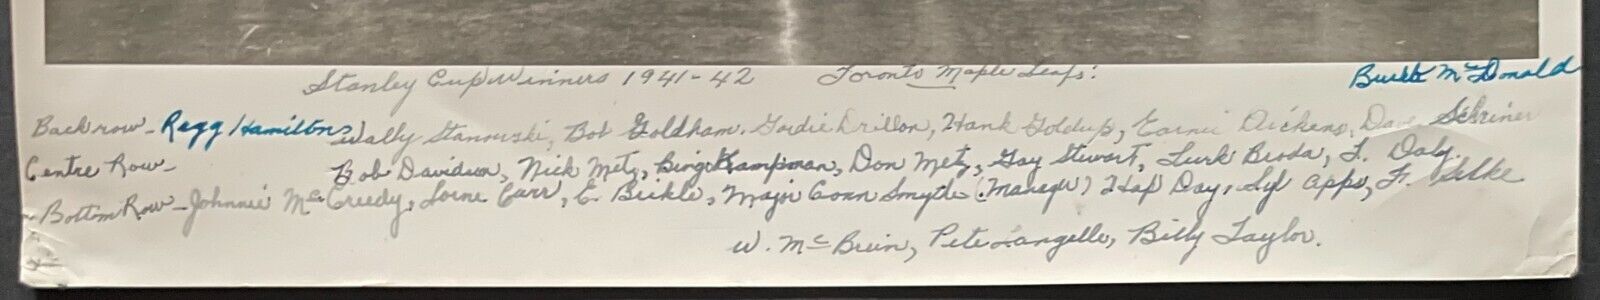 Stanley Cup Winners 1941-42 Toronto Maple Leafs: McDonald
Back row - Regg Hamilton, Wally Stanowski, Bob Goldham, Gordie Drillon, Hank Goldup, Earnie Dickens, Schriner
Centre Row - Bob Davidson, Nick Metz, Bingo Kampman, Don Metz, Gay Stewart, Turk Broda, T. Daly.
Bottom Row - Johnnie McCreedy, Lorne Carr, E. Bickle, Major Conn Smythe (Manager) Hap Day, Syl Apps, Fr. Selke
W. McBrien, Pete Langelle, Billy Taylor.